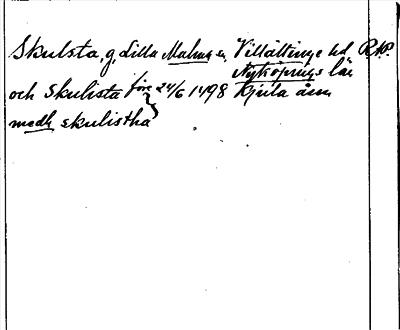 Skulsta, g, lilla Malms sn, Villåttinge hd RAP.
Nyköpings län
och Skulista före 24/6 1498 Kjula åsn
medh skulistha